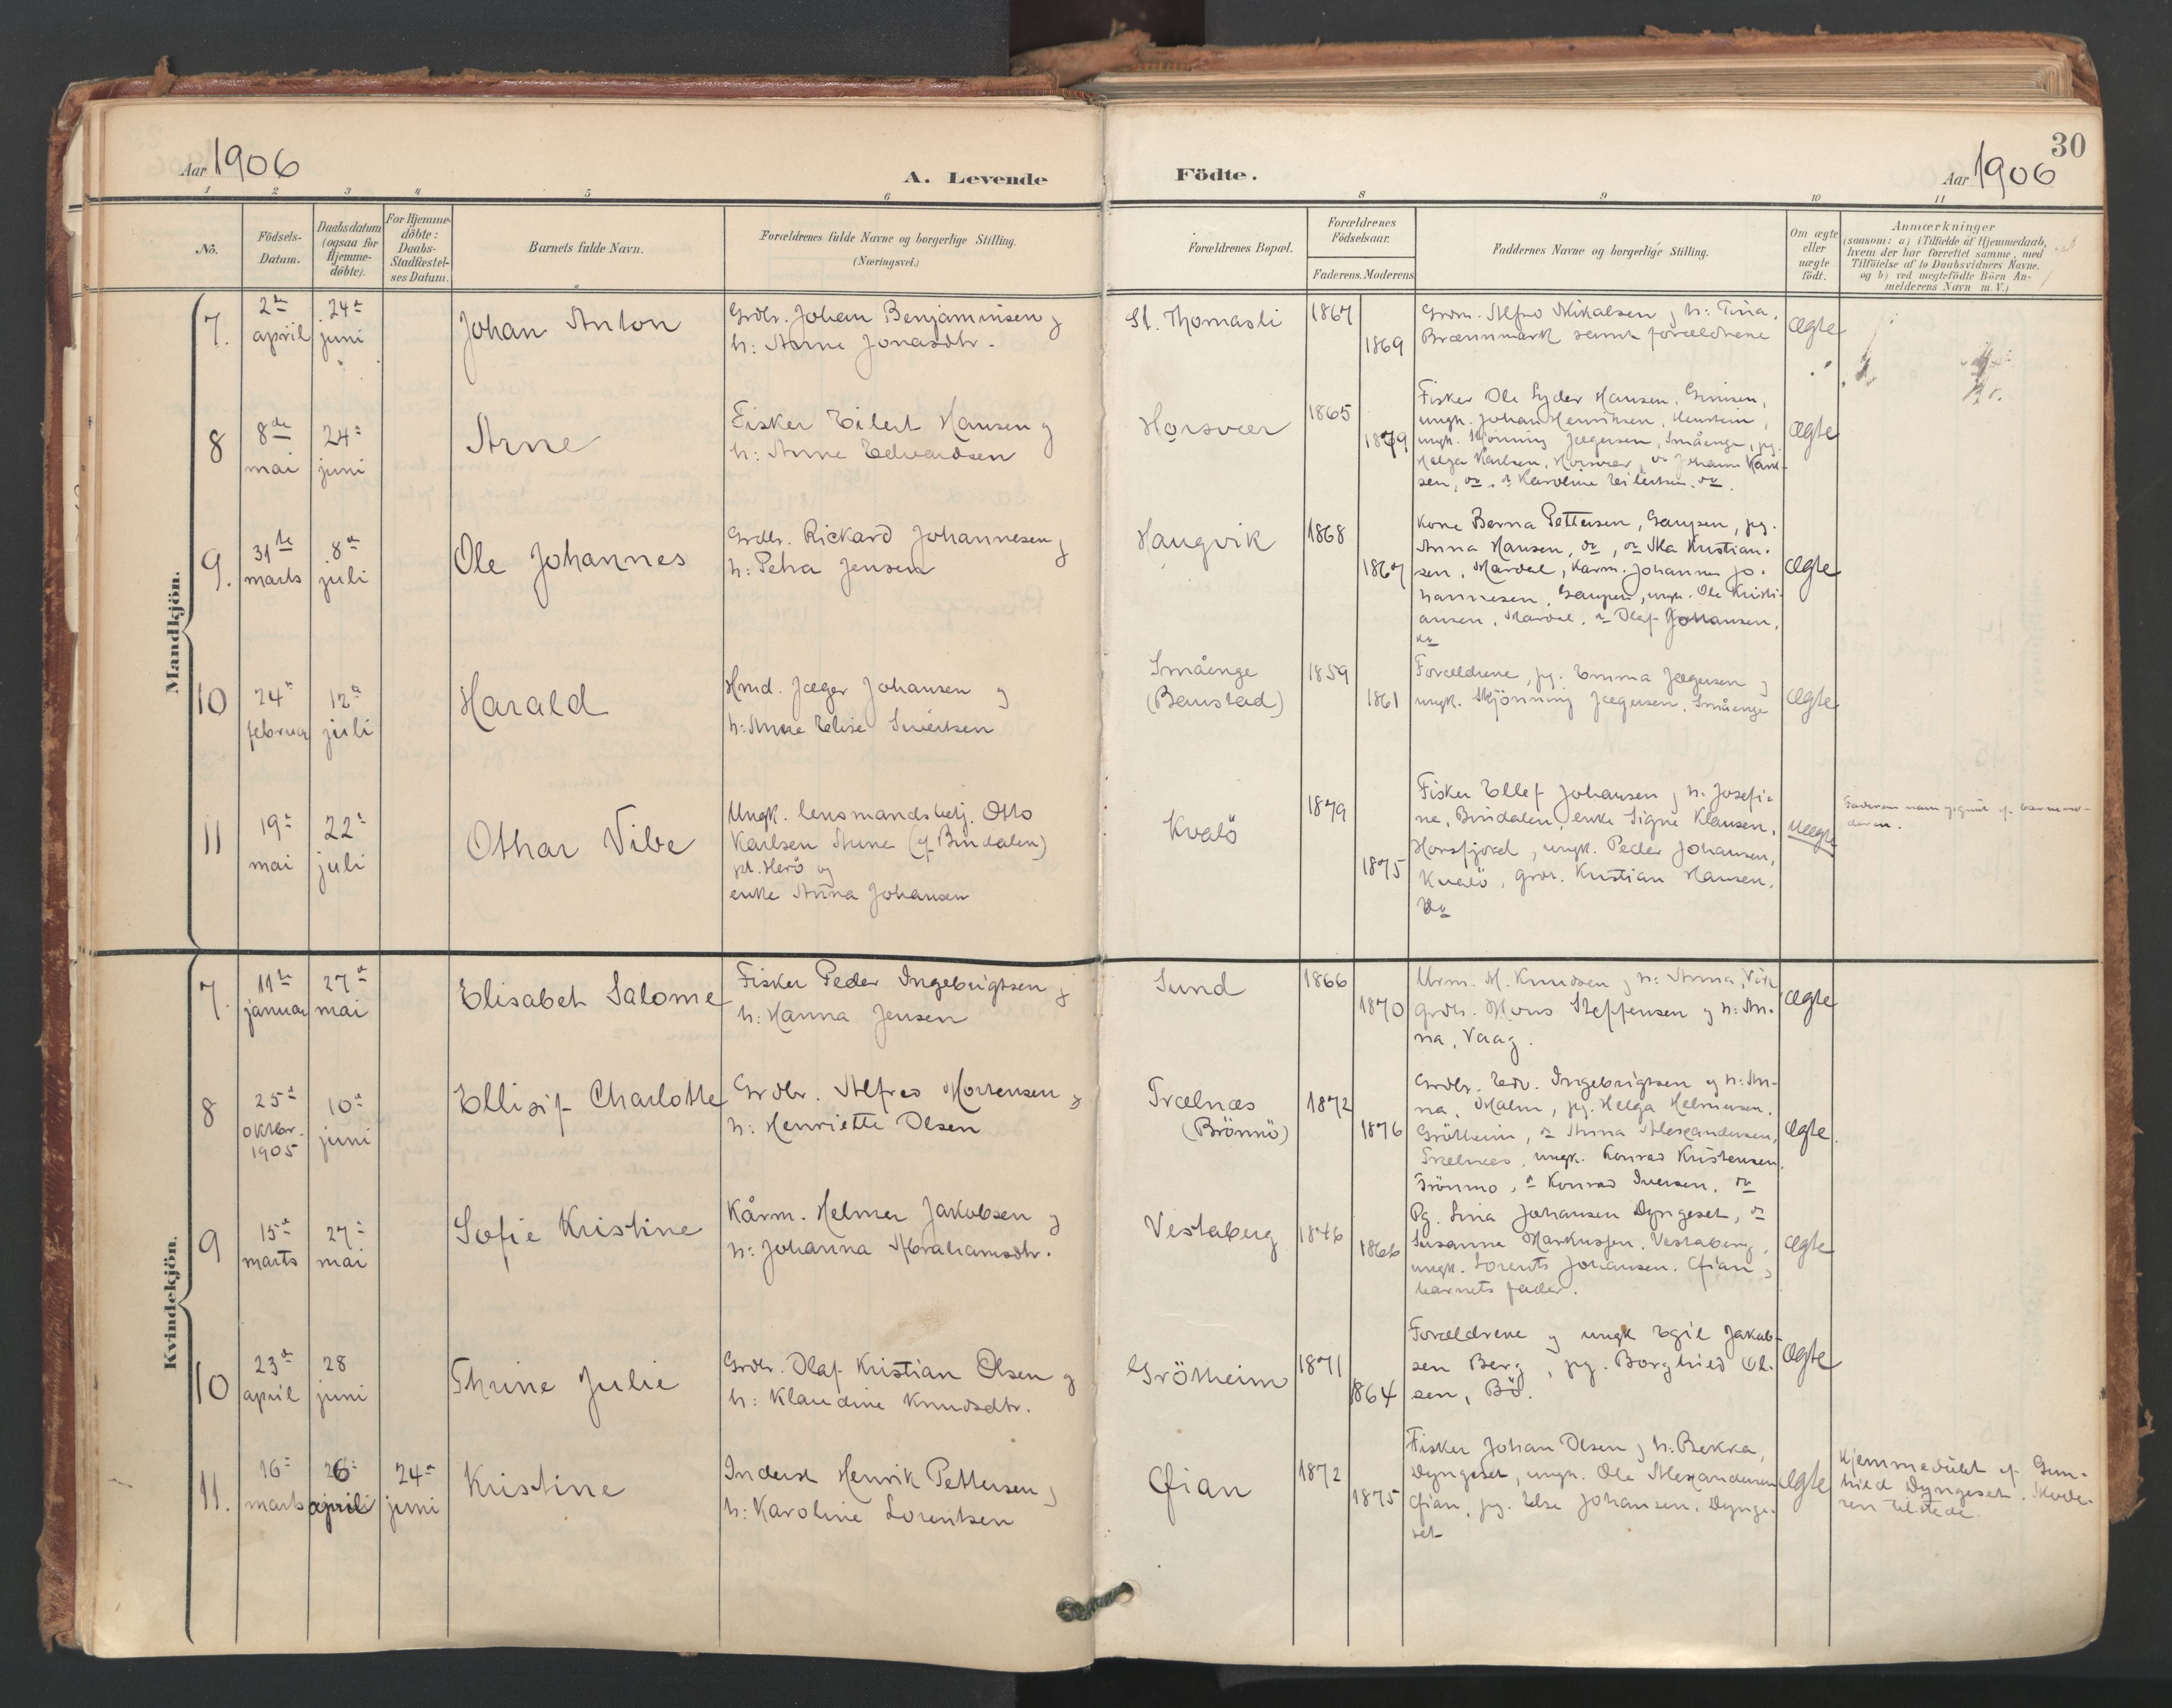 30
Aar 1906
A. Levende
Födte.
Aar 1906
1 2 3 4 5 6 8 9 10 11
No.
Födsels-
Datum.
Daabsdatum
(ogsaa for
Hjemme-
döbte).
For Hjemme-
döbte:
Daabs-
Stadfæstel-
ses Datum.
Barnets fulde Navn.
Forældrenes fulde Navne og borgerlige Stilling.
(Næringsvei.)
Forældrenes Bopæl.
Forældrenes
Födselsaar.
Faderens. Moderens.
Faddernes Navne og borgerlige Stilling.
Om ægte
eller
uægte
födt.
Anmærkninger
(saasom: a) i Tilfælde af Hjemmedaab,
hvem der har forrettet samme, med
Tilföielse af to Daabsvidners Navne.
og b) ved uægtefödte Börn An-
melderens Navn m. V.)
Mandkjön.
7.
2de
april
24de
juni
Johan Anton
Grdbr. Johan Benjaminsen og
h: Anne Jonasdtr.
St. Thomasli
1867
1869
Grdm. Alfred Mikalsen og h: Tina,
Brænnmark samt forældrene
ægte
8
8de
mai
24de
juni
Arne
Fisker Eilert Hansen og
h: Anne Edvardsen
Horsvær
1865
1879
Fisker Ole Lyder Hansen,
ungk. Johan Henriksen,
ungk. Skjönning Jægersen, Småenge, pg.
Helga Karlsen, Horsvær, do Johanna Karl-
sen, do, do Karoline Eilertsen, do.
ægte
9.
31te
marts
8de
juli
Ole Johannes
Grdbr. Rickard Johannesen og
h: Petra Jensen
Haugvik
1868
1867
Kone Berna Pettersen, Gaupen, pg.
Anna Hansen, do, do Ida Kristian-
sen, Mardal, Kårm. Johannes Jo-
hannesen, Gaupen, ungk. Ole Kristi-
ansen, Mardal, do Olaf Johansen,
do
ægte
10
24de
februar
12de
juli
Harald
Hmd. Jæger Johansen og
h: Anne Elise Sivertsen
Småenge
(Baustad)
1859
1861
Forældrene, pg. Emma Jægersen og
ungk. Skjönning Jægersen, Småenge
ægte
11
19de
mai
22de
juli
Othar Vibe
Ungk. lensmandsbetj. Otto
Karlsen Aune (af Bindalen)
pt. Herö og
enke Anna Johansen
Kvalö
1879
1875
Fisker Ellef Johansen og h: Josefi-
ne, Bindalen, enke Signe Klausen,
Horsfjord, ungk. Peder Johansen,
Kvalö, grdr. Kristian Hansen,
do
uægte
Faderens navn opgivet af barnemo-
deren.
Kvindekjön.
7.
11te
januar
27de
mai
Elisabet Salome
Fisker Peder Ingebrigtsen og
h: Hanna Jensen
Sund
1866
1870
M. Knudsen og h: Anna, Vik
grdbr. Mons Steffensen og h: An-
na, Vaag.
ægte
8
25de
oktbr.
1905
10de
juni
Ellisif Charlotte
Grdbr. Alfred Mortensen og
h: Henriette Olsen
Trælnæs
(Brönnö)
1872
1876
Grdbr. Edv. Ingebrigtsen og h: An-
na, Malm, pg. Helga Helmersen,
Grötheim, do Anna Alexandersen,
Trælnæs, ungk. Konrad Kristensen,
Trönmo, do Konrad Iversen, do
ægte.
9
15de
marts
27de
mai
Sofie Kristine
Kårm. Helmer Jakobsen og
h: Johanna Abrahamsdtr.
Vestaberg
1846
1866
Pg. Lina Johansen Dyngeset, do
Susanne Markussen, Vestaberg,
ungk. Lorents Johansen, Qfian,
barnets fader.
ægte
10
23de
april
28
juni
Thrine Julie
Grdbr. Olaf Kristian Olsen og
h: Klaudine Knudsdtr.
Grötheim
1871
1864
Forældrene og ungk Egil Jakob-
sen Berg, pg. Borghild Ol-
sen, Bö.
ægte
11.
16de
marts
26de
april
24de
juni
Kristine
Inderst Henrik Pettersen og
h: Karoline Lorentsen
Qfian
1872
1875
Fisker Johan Olsen og h: Bekka,
Dyngeset, ungk. Ole Alexandersen
Qfian, pg. Else Johansen, Dynge-
set
ægte
Hjemmedöbt af Gun-
hild Dyngeset. Mode-
ren tilstede.